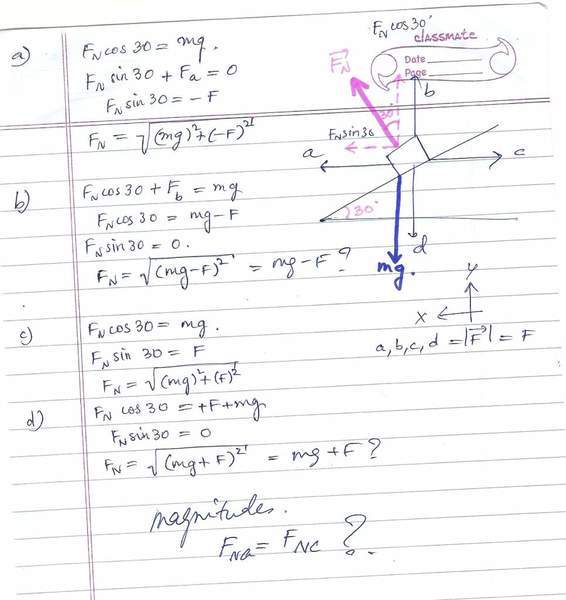 a)
F_N cos 30 = mg.
F_N sin 30 + F_a = 0
F_N sin 30 = -F
F_N = √(mg)² + (-F)²
b)
F_N cos 30 + F_b = mg
F_N cos 30 = mg - F
F_N sin 30 = 0.
F_N = √(mg-F)² = mg - F ?
c)
F_N cos 30 = mg.
F_N sin 30 = F
F_N = √(mg)² + (F)²
d)
F_N cos 30 = +F + mg
F_N sin 30 = 0
F_N = √(mg + F)² = mg + F ?
magnitudes.
F_Na = F_Nc ?
F_N cos 30°
CLASSMATE
Date
Page
F_N
b
30°
F_N sin 30
a
c
30°
d
mg.
y
x
a, b, c, d = |F| = F